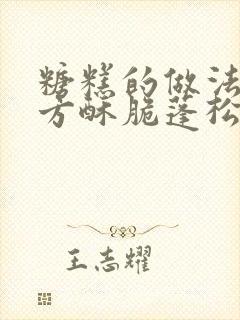 糖糕的做法
方酥脆蓬松
王志耀